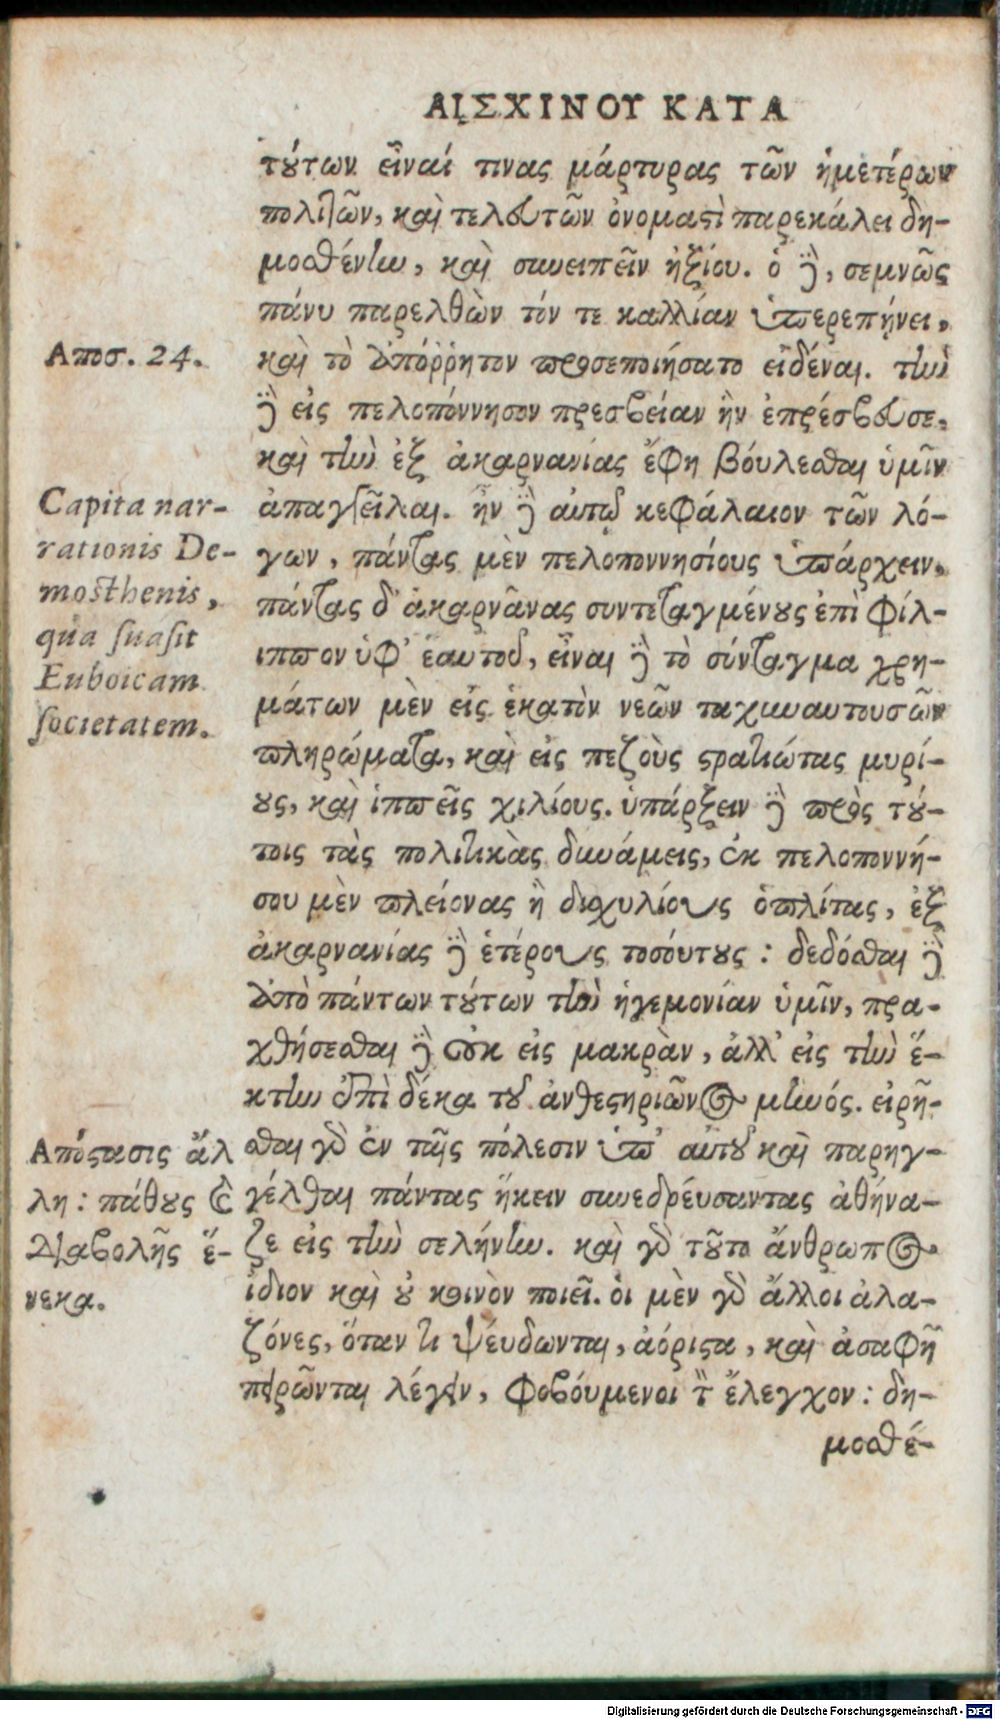 ΑΙΣΧΙΝΟΥ ΚΑΤΑ
τούτων εἶναί τινας μάρτυρας τῶν ἡμετέρων
πολιτῶν, καὶ τελευτῶν ὀνομαστὶ παρεκάλει δη-
μοσθένην, καὶ συνειπεῖν ἠξίου. ὁ δὲ, σεμνῶς
πάνυ παρελθὼν τόν τε καλλίαν ὑπερεπήνει,
καὶ τὸ ἀπόῤῥητον προσεποιήσατο εἰδέναι. τὴν
δὲ εἰς πελοπόννησον πρεσβείαν ἣν ἐπρέσβευσε,
καὶ τὴν ἐξ ἀκαρνανίας ἔφη βούλεσθαι ὑμῖν
ἀπαγγεῖλαι. ἦν δὲ αὐτῷ κεφάλαιον τῶν λό-
γων, πάντας μὲν πελοποννησίους ὑπάρχειν,
πάντας δ' ἀκαρνᾶνας συντεταγμένους ἐπὶ φίλ-
ιππον ὑφ' ἑαυτοῦ, εἶναι δὲ τὸ σύνταγμα χρη-
μάτων μὲν εἰς ἑκατὸν νεῶν ταχυναυτουσῶν
πληρώματα, καὶ εἰς πεζοὺς στρατιώτας μυρί-
ους, καὶ ἱππεῖς χιλίους. ὑπάρξειν δὲ πρὸς τού-
τοις τὰς πολιτικὰς δυνάμεις, ἐκ πελοποννή-
σου μὲν πλείονας ἢ δισχυλίους ὁπλίτας, ἐξ
ἀκαρνανίας δὲ ἑτέρους τοσούτους : δεδόσθαι δὲ
ἀπὸ πάντων τούτων τὴν ἡγεμονίαν ὑμῖν, πρα-
χθήσεσθαι δὲ οὐκ εἰς μακρὰν, ἀλλ' εἰς τὴν ἕ-
κτην ἐπὶ δέκα τοῦ ἀνθεστηριῶνος μηνός. εἰρῆ-
σθαι γὰρ ἐν ταῖς πόλεσιν ὑπ' αὐτοῦ καὶ παρηγ-
γέλθαι πάντας ἥκειν συνεδρέυσαντας ἀθήνα-
ζε εἰς τὴν σελήνην. καὶ γὰρ τοῦτο ἄνθρωπος
ἴδιον καὶ οὐ κοινὸν ποιεῖ. οἱ μὲν γὰρ ἄλλοι ἀλα-
ζόνες, ὅταν τι ψέυδωνται, ἀόριστα, καὶ ἀσαφῆ
πειρῶνται λέγειν, φοβούμενοι τὸν ἔλεγχον : δη-
μοσθέ-
Αποσ. 24.
Capita nar-
rationis De-
mosthenis,
qua suasit
Euboicam
societatem.
Απόστασις ἄλ
λη : πάθους καὶ
διαβολῆς ἕ-
νεκα.
Digitalisierung gefördert durch die Deutsche Forschungsgemeinschaft - DFG